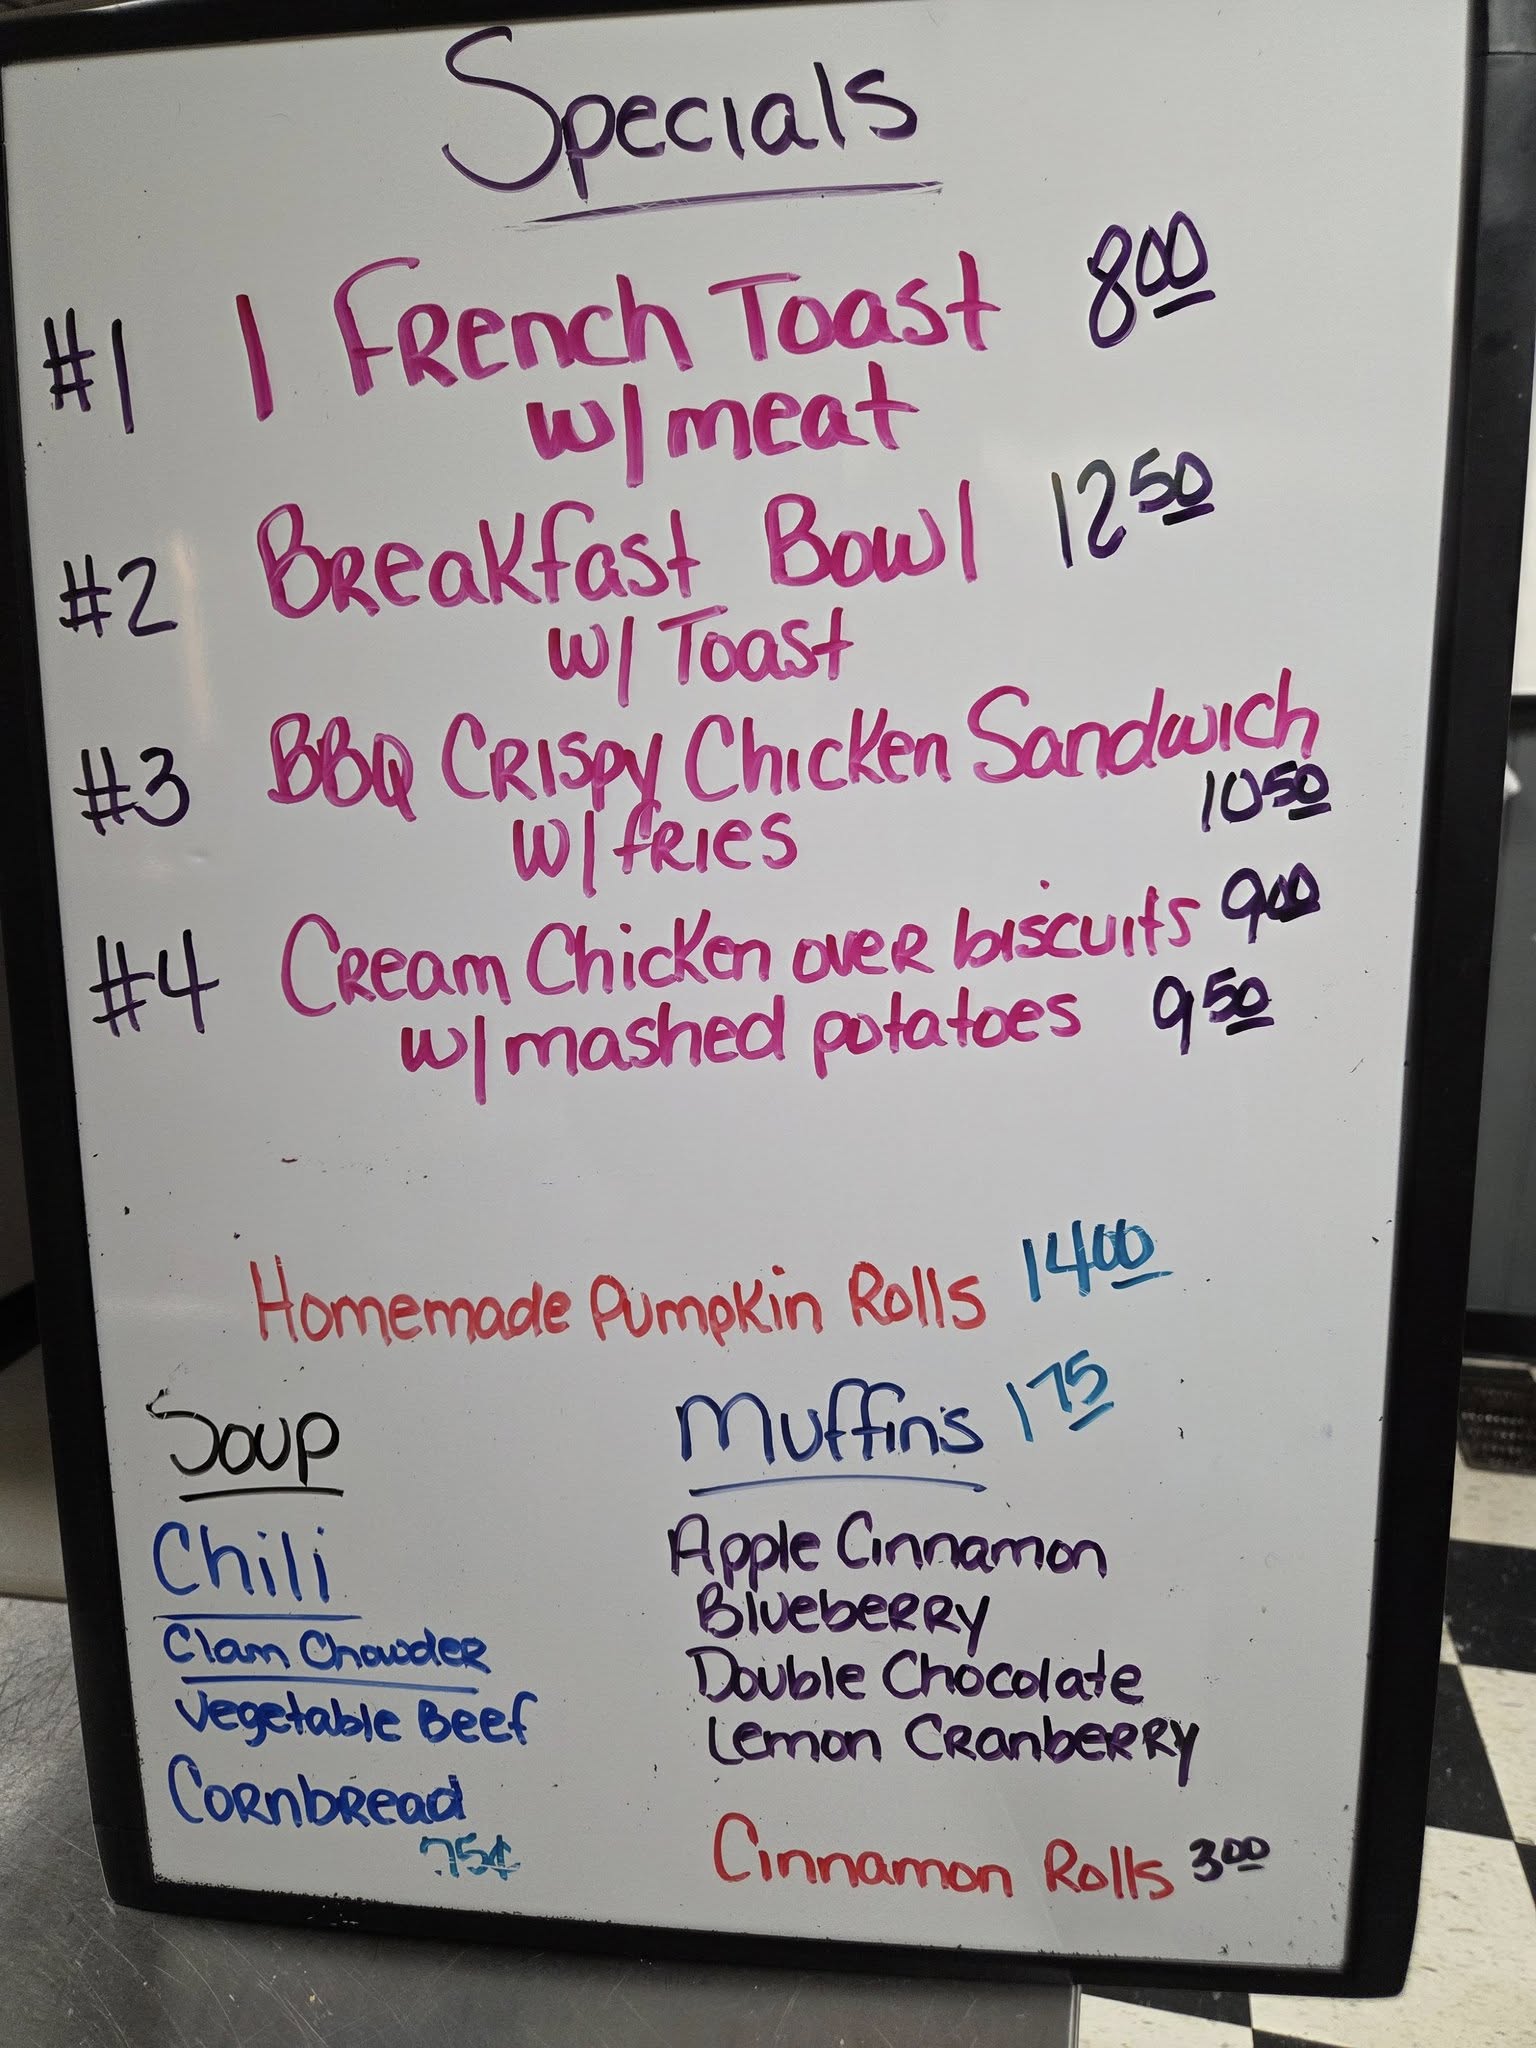 Specials
#1 1 French Toast 8.00
w/ meat
#2 Breakfast Bowl 12.50
w/ Toast
#3 BBQ Crispy Chicken Sandwich
w/ fries 10.50
#4 Cream Chicken over biscuits 9.00
w/ mashed potatoes 9.50
Homemade Pumpkin Rolls 14.00
Soup
Chili
Clam Chowder
Vegetable Beef
Cornbread
.75¢
Muffins 1.75
Apple Cinnamon
Blueberry
Double Chocolate
Lemon Cranberry
Cinnamon Rolls 3.00